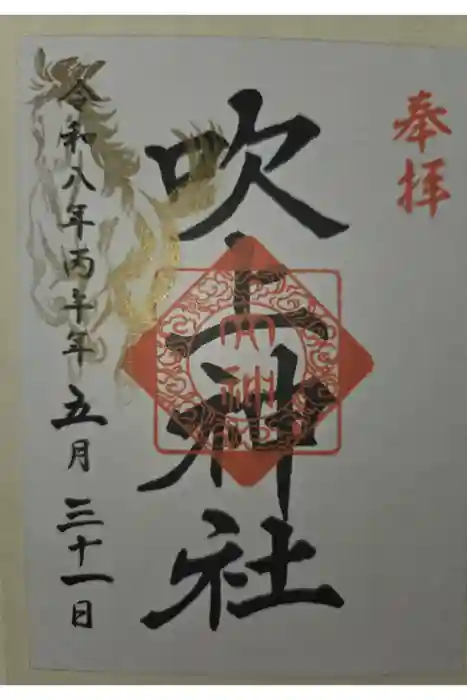 奉拝
吹上神社
令和八年丙午年五月三十一日